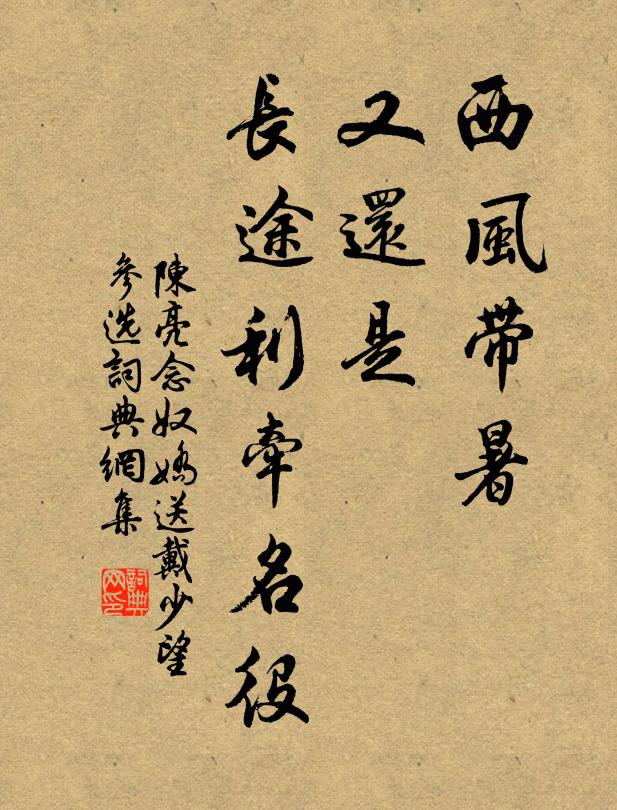 西風帶暑
又還是
長途利牽名役
陳亮念奴嬌送戴少望
參选詞典網集
詞典网印